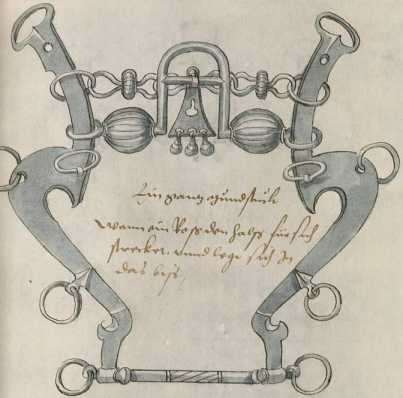 Ein gantz mundstuck
Wann ein Roß den halß für sich
strecket unnd legt sich In
das biß